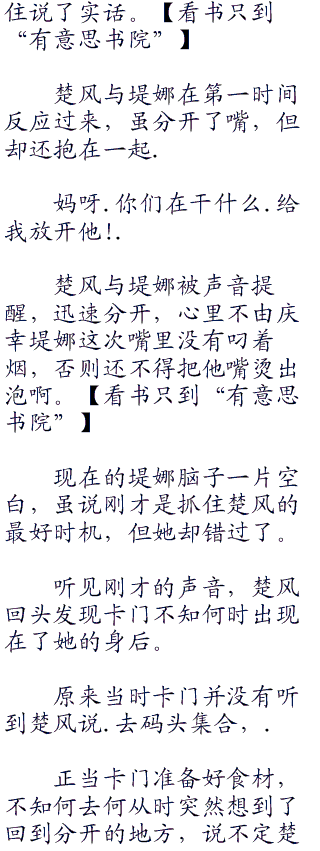 住说了实话。【看书只到
“有意思书院”】
楚风与堤娜在第一时间
反应过来，虽分开了嘴，但
却还抱在一起.
妈呀.你们在干什么.给
我放开他!.
楚风与堤娜被声音提
醒，迅速分开，心里不由庆
幸堤娜这次嘴里没有叼着
烟，否则还不得把他嘴烫出
泡啊。【看书只到“有意思
书院”】
现在的堤娜脑子一片空
白，虽说刚才是抓住楚风的
最好时机，但她却错过了。
听见刚才的声音，楚风
回头发现卡门不知何时出现
在了她的身后。
原来当时卡门并没有听
到楚风说.去码头集合，.
正当卡门准备好食材，
不知何去何从时突然想到了
回到分开的地方，说不定楚